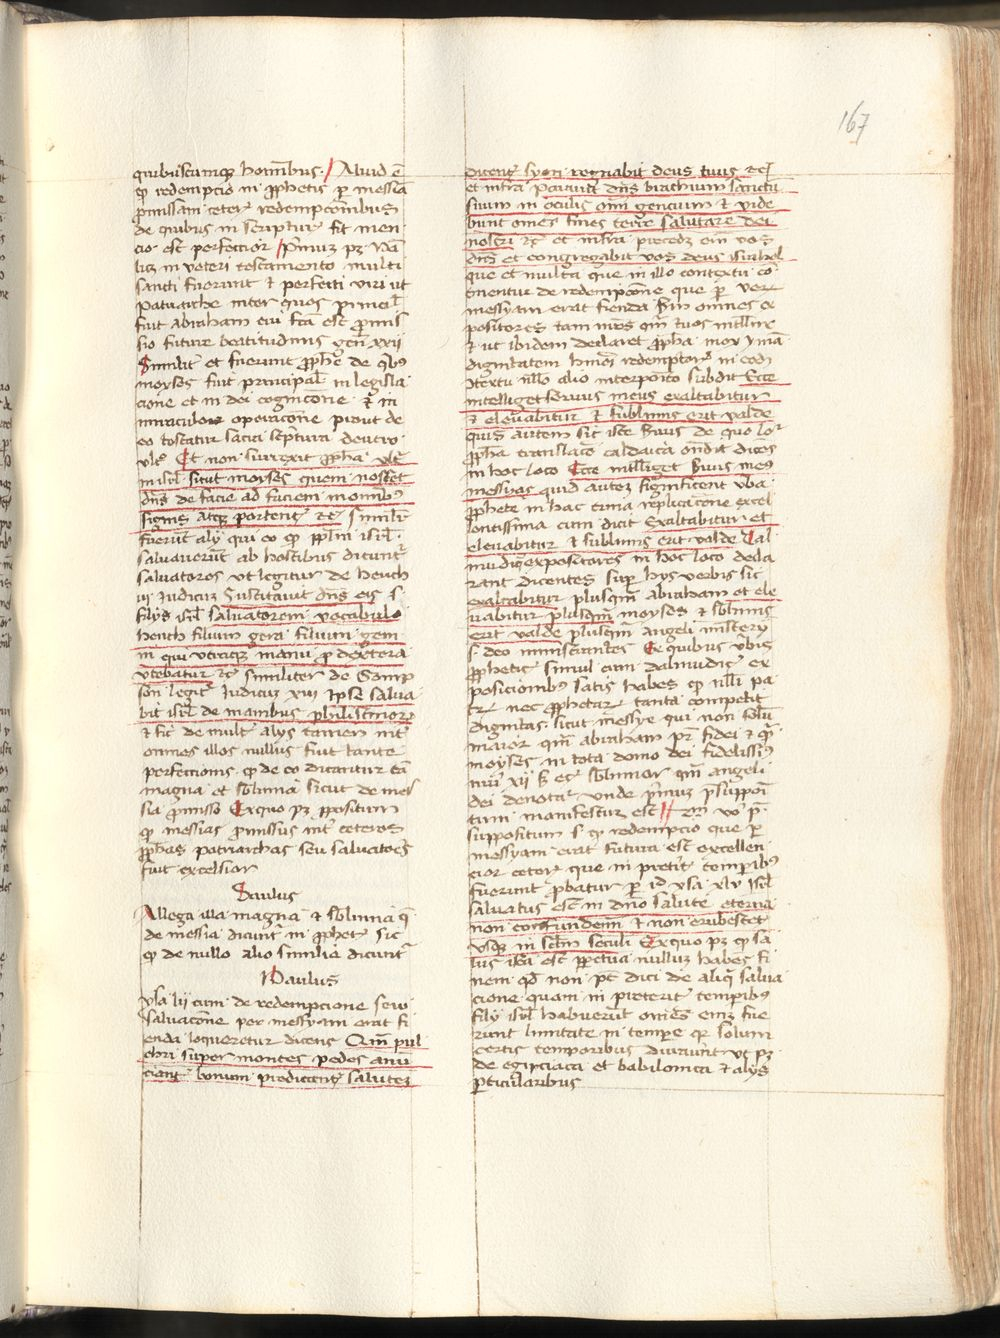 167
quibuscumq hominibus / Aliud ē
qp redempcio in pphetis p messia
pmissam ceteris redempcōnibus
de quibus in scriptur fit men
cio est perfectior / Primuz pz Nā
licz in veteri testamento multi
sancti fuerunt et perfecti viri ut
Patriarche inter quos principal
fuit Abraham cui fcā est promis
sio future beatitudinis gen̄ xxij
Similit et fuerunt pphe de qbus
moyses fuit principal in legisla
cione et in dei cognicōne et in
miraculoru operacōne prout de
eo testatur sacra scptura deutro
vlt Et non surrexit ppha vltr
in isrl sicut moyses quem nosset
dn̄s de facie ad faciem in omnibus
signis atq portentis etc Similr
fuerūt alij qui eo qp pplm isrl
saluauerūt ab hostibus dicuntr
saluatores vt legitur de heuth
iij Judicuz Suscitauit dn̄s eis s
filijs isrl saluatorem vocabulo
heuth filium gera filium gem
ini qui vtraque manu p dextera
vtebatur etc similiter de Samp
son legit Judicuz xiij Ipse salua
bit isrl de manibus philistinor
et sic de mult alijs tamen int
omnes illos nullus fuit tante
perfectionis qp de eo dicantur tā
magna et sōlinnia sicut de mes
sia pmisso Ex quo pz ppositum
qp messias pmissus int ceteros
pphas patriarchas seu saluatores
fuit excelsior
Saulus
Allega illa magna et sōlinnia q
de messia dicunt in pphet sic
qp de nullo alio similia dicunt
Paulus
ysa lij cum de redempcione seu
saluacōne per messyam erat fi
enda loqueretur dicens Qm̄ pul
chri super montes pedes anu
ciant bonum predicent salutez
dicent syon regnabit deus tuus etc
et infra Parauit dn̄s brachium sanctū
suum in oculis om̄i gencium et vide
bunt omes fines terre salutare dei
nostri etc et infra precedz eīm vos
dn̄s et congregabit vos deus israhel
que et multa que in illo contextu cō
tinentur de redempcōne que p ver
messyam erat fienda scdm omnes ex
positores tam nrōs qm̄ tuos intllīre
et ut ibidem declaret ppha mox ymā
dignitatem huius redemptoris in eodē
contextu nllo alio interposito subdit Ecce
intelliget seruus meus exaltabitur
et eleuabitur et sublimis erit valde
quis autem sit iste Suus de quo loqr
ppha translacō caldaica ondit dicēs
in hoc loco Ecce intlliget Suus meus
messyas quid autez significent vba
pphete in hac trina replicacōne excel
lentissima cum dicit exaltabitur et
eleuabitur et sublimis erit valde Tal
mudiq expositores in hoc loco decla
rant dicentes sup hijs verbis sic
exaltabitur plusqm̄ abraham et ele
uabitur plusqm̄ moyses et sblimis
erit valde plusqm̄ angeli mīsterij
s deo ministrantes Ex quibus vbis
pphetis simul cum dalmudic ex
posicionibus satis habes qp nlli pa
tr nec pphetar tanta competit
dignitas sicut messye qui non solū
maior qm̄ abraham pr̄ fidei et qm̄
moyses in tota domo dei fidelissimus
nūi xij s ecr sblimior qm̄ angeli
dei denotar vnde primuz psuppoi
tum manifestum est // 2m̄ vo p
suppositum s qp redempcio que p
messyam erat futura est excellen
cior ceteris que in pretitis temporibus
fuerunt probatur p id ysa xlv isrl
saluatus est in dn̄o salute eterna
non confundemi et non erubescet
vsq in sclm seculi Ex quo pz qp sa
lus ista est ppetua nulluz habens fi
nem qd non pt dici de aliq salua
cione quam in preteritis tempibus
filij isrl habuerūt om̄es eīnz fue
runt limitate in tempe qr solum
certis temporibus durarūt vt pz
de egipciaca et babilonica et alijs
pticularibus